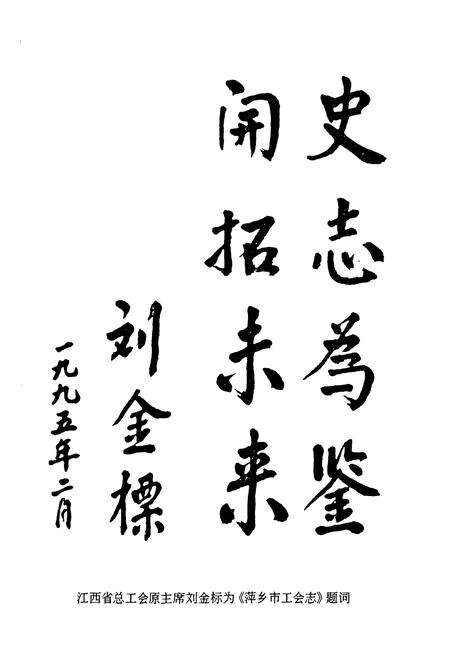 史志為鉴
開拓未来
刘金標
一九九五年二月
江西省总工会原主席刘金标为《萍乡市工会志》题词